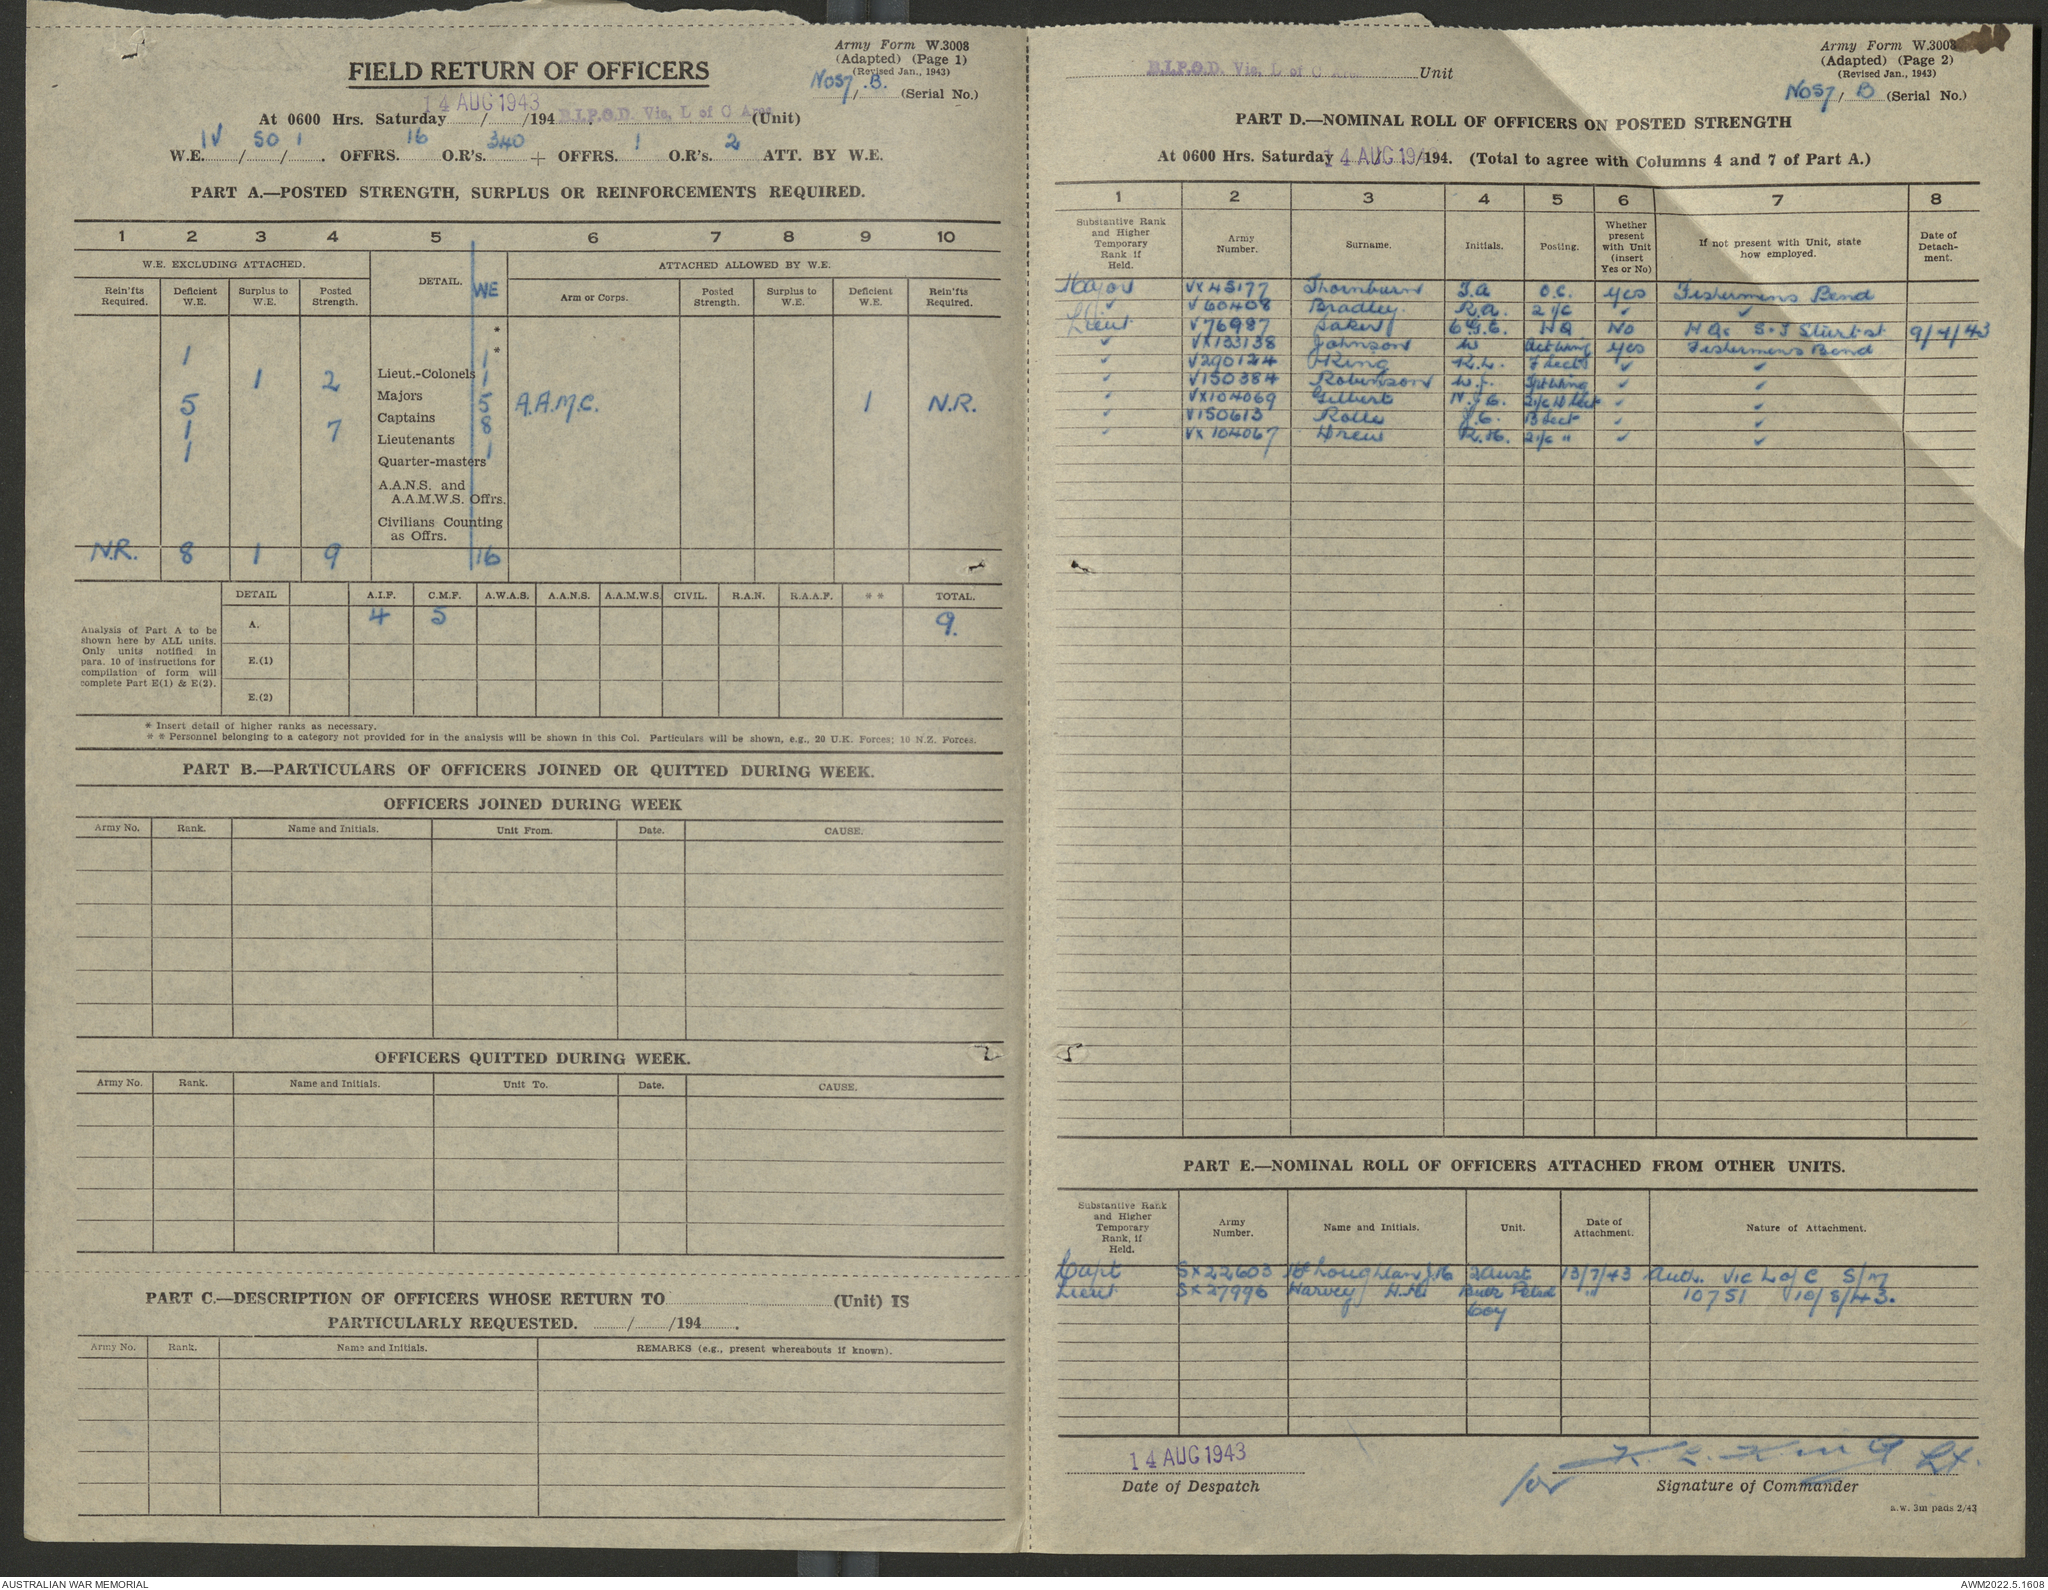 Army Form W.3008
(Adapted) (Page 1)
(Revised Jan., 1943)
NO57/B. (Serial No.)
FIELD RETURN OF OFFICERS
14 AUG 1943
At 0600 Hrs. Saturday / /194 B.I.P.O.D. Vic. L of C Area (Unit)
W.E. IV / 50 / 1 . OFFRS. 16 O.R's. 340 + OFFRS. 1 O.R's. 2 ATT. BY W.E.
PART A.—POSTED STRENGTH, SURPLUS OR REINFORCEMENTS REQUIRED.
1 2 3 4 5 6 7 8 9 10
W.E. EXCLUDING ATTACHED. DETAIL. WE ATTACHED ALLOWED BY W.E.
Rein'fts Required. Deficient W.E. Surplus to W.E. Posted Strength. Arm or Corps. Posted Strength. Surplus to W.E. Deficient W.E. Rein'fts Required.
*
*
1 Lieut.-Colonels 1
1 2 Majors 1
5 Captains 5 A.A.M.C. 1 N.R.
1 7 Lieutenants 8
1 Quarter-masters 1
A.A.N.S. and
A.A.M.W.S. Offrs.
Civilians Counting
as Offrs.
N.R. 8 1 9 16
DETAIL A.I.F. C.M.F. A.W.A.S. A.A.N.S. A.A.M.W.S. CIVIL. R.A.N. R.A.A.F. * * TOTAL.
Analysis of Part A to be
shown here by ALL units.
Only units notified in
para. 10 of instructions for
compilation of form will
complete Part E(1) & E(2).
A. 4 5 9.
E.(1)
E.(2)
* Insert detail of higher ranks as necessary.
* * Personnel belonging to a category not provided for in the analysis will be shown in this Col. Particulars will be shown, e.g., 20 U.K. Forces; 10 N.Z. Forces.
PART B.—PARTICULARS OF OFFICERS JOINED OR QUITTED DURING WEEK.
OFFICERS JOINED DURING WEEK
Army No. Rank. Name and Initials. Unit From. Date. CAUSE.
OFFICERS QUITTED DURING WEEK.
Army No. Rank. Name and Initials. Unit To. Date. CAUSE.
PART C.—DESCRIPTION OF OFFICERS WHOSE RETURN TO (Unit) IS
PARTICULARLY REQUESTED. / /194 .
Army No. Rank. Name and Initials. REMARKS (e.g., present whereabouts if known).
Army Form W.3008
(Adapted) (Page 2)
(Revised Jan., 1943)
NO57/ B (Serial No.)
B.I.P.O.D. Vic. L of C Area Unit
PART D.—NOMINAL ROLL OF OFFICERS ON POSTED STRENGTH
At 0600 Hrs. Saturday 14 AUG 194 /194. (Total to agree with Columns 4 and 7 of Part A.)
1 2 3 4 5 6 7 8
Substantive Rank and Higher Temporary Rank if Held. Army Number. Surname. Initials. Posting. Whether present with Unit (insert Yes or No) If not present with Unit, state how employed. Date of Detachment.
Major VX45177 Thornburn T.A O.C. Yes Fishermens Bend
✓ V60408 Bradley. R.A. 2 i/c ✓ ✓
Lieut V76987 Baker HQ No HQ Sturt st 9/4/43
✓ VX133138 Johnson W Yes Fishermens Bend
✓ V290124 King K.L. ✓ ✓
✓ V150384 Robinson W.J. ✓ ✓
✓ VX104069 Gilbert ✓ ✓
✓ V150613 Rolls B Sect ✓ ✓
✓ VX104067 Drew R.H. 2 i/c " ✓ ✓
PART E.—NOMINAL ROLL OF OFFICERS ATTACHED FROM OTHER UNITS.
Substantive Rank and Higher Temporary Rank, if Held. Army Number. Name and Initials. Unit. Date of Attachment. Nature of Attachment.
Capt SX22603 2 Aust 13/7/43 Auth. Vic L of C S/M
Lieut SX27996 Harvey H.H. Bulk Petrol " 10751 10/8/43.
Coy
14 AUG 1943
Date of Despatch
for K. L. King Lt.
Signature of Commander
a.w. 3m pads 2/43
AUSTRALIAN WAR MEMORIAL
AWM2022.5.1608